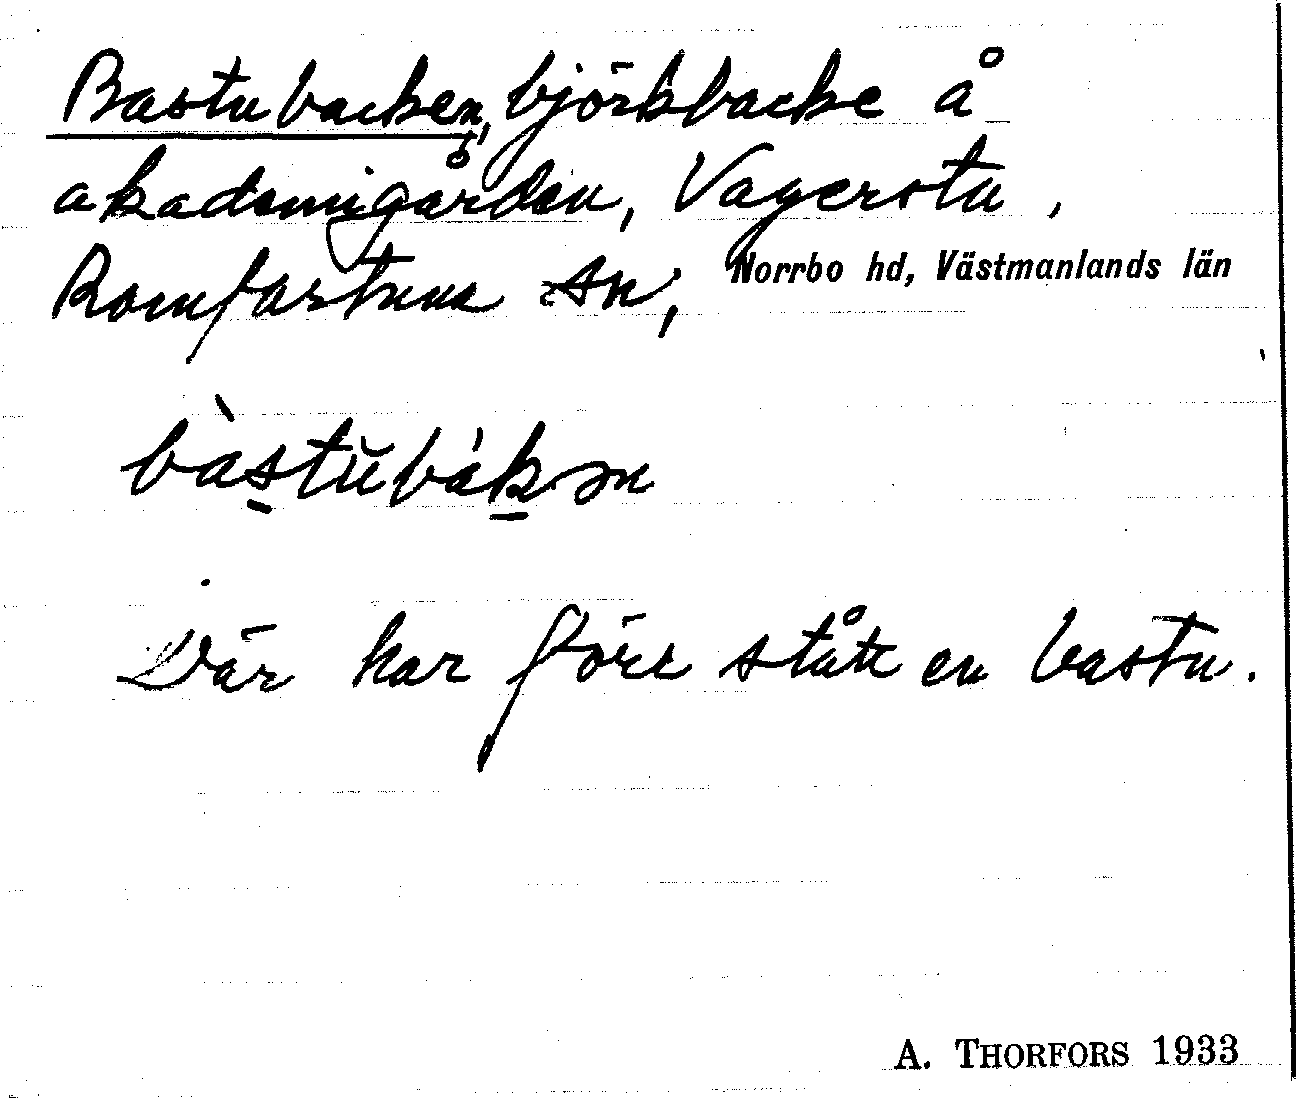 Bastubacken, björkbacke å
akademigården, Vagersta,
Romfartuna sn, Norrbo hd, Västmanlands län
bàs̱tŭbáḵən
Där har förr stått en bastu.
A. THORFORS 1933